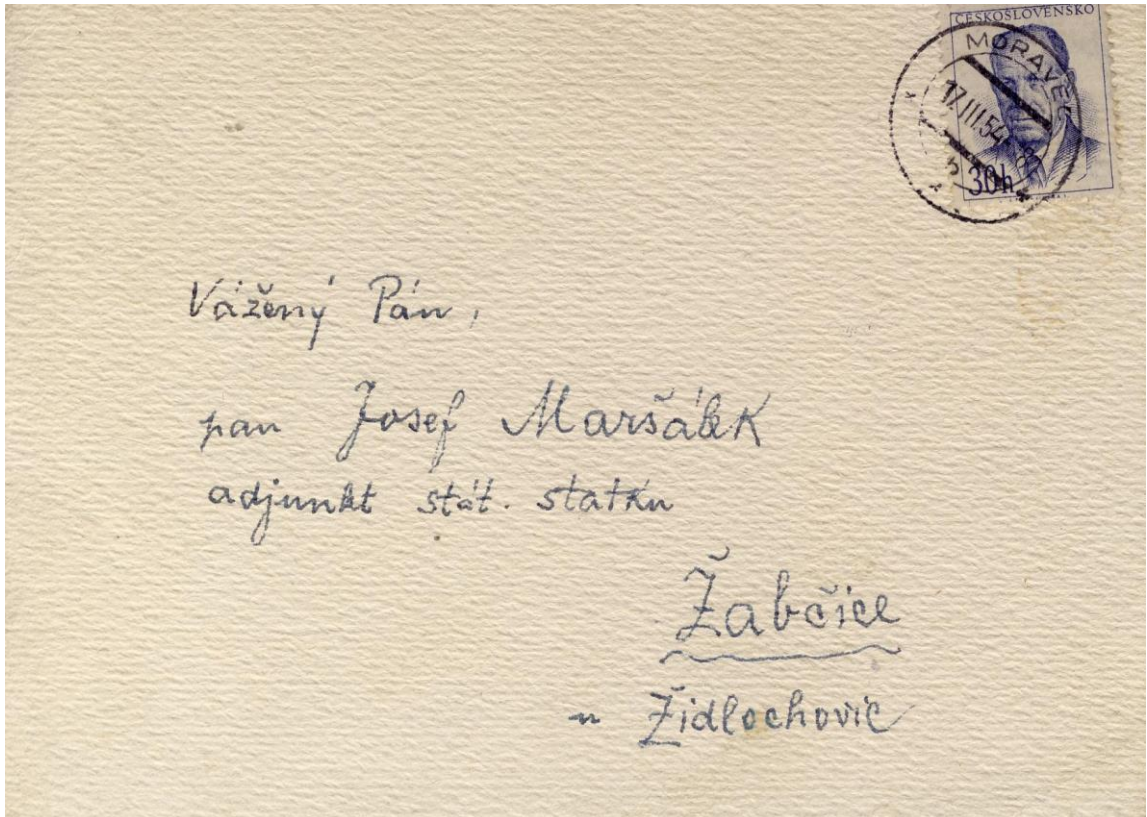 ČESKOSLOVENSKO
MORAVEC
17.III.54
30h
Vážený Pán,
pan Josef Maršálek
adjunkt stát. statku
Žabčice
u Židlochovic